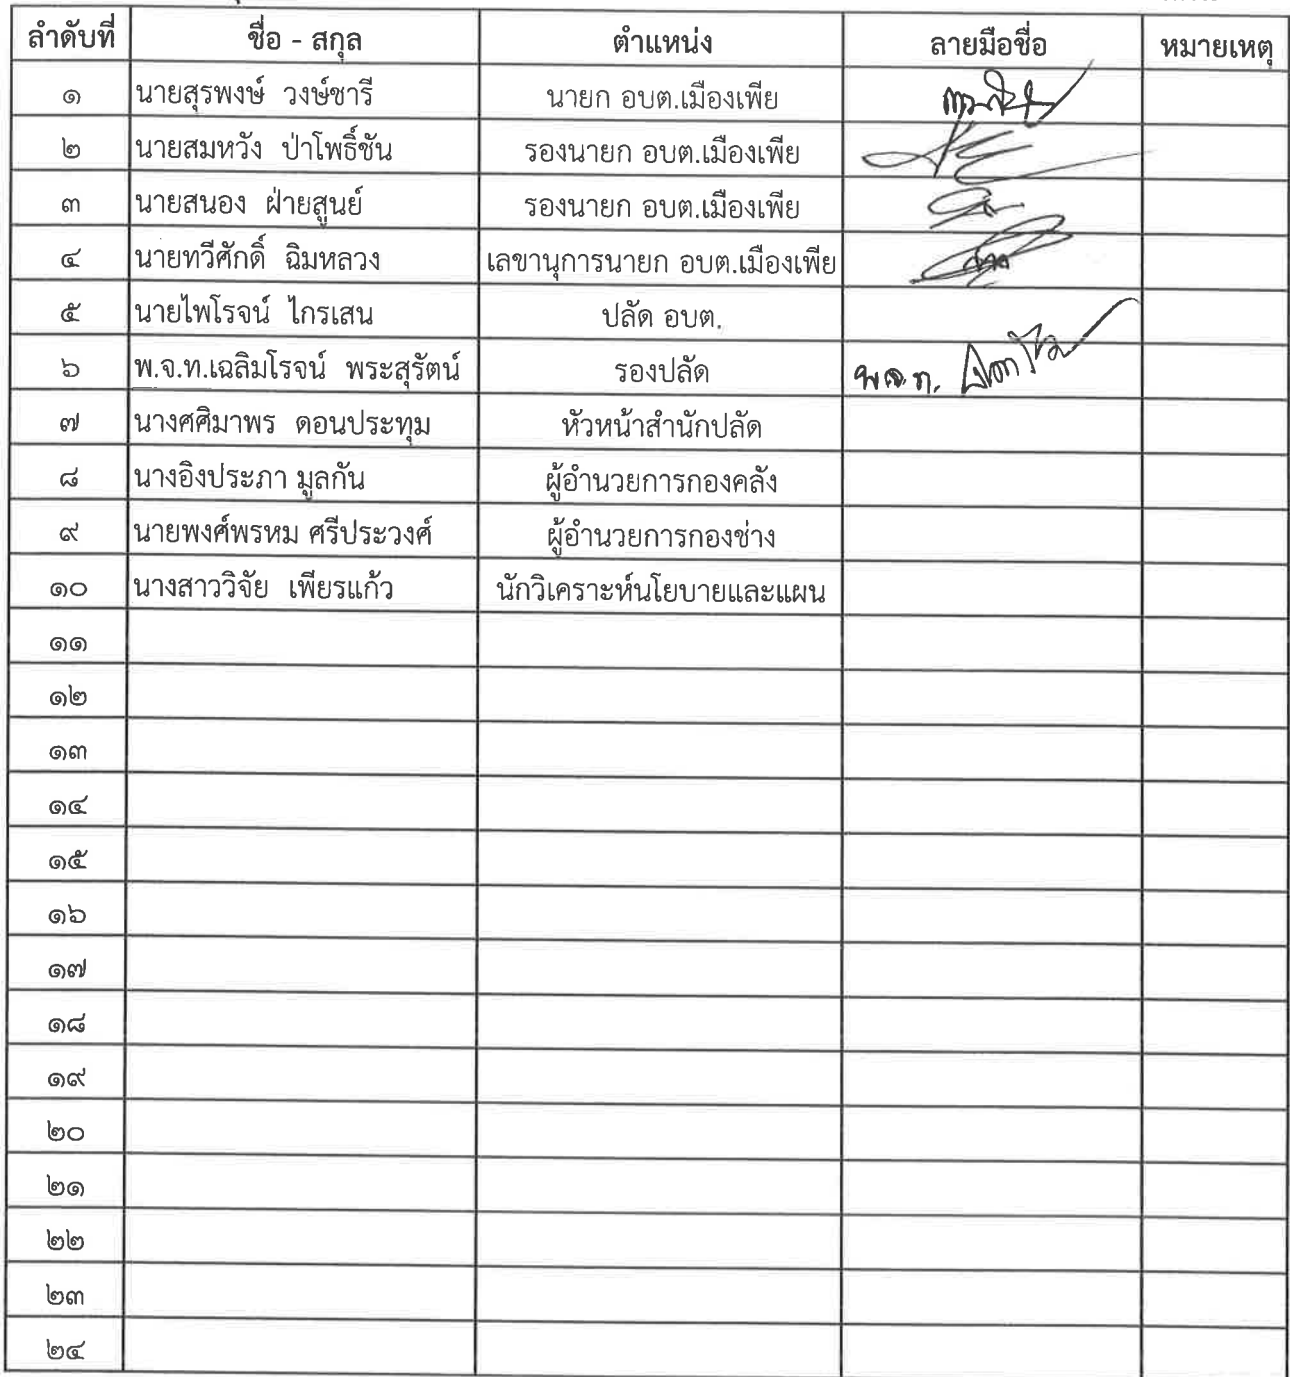 ลำดับที่ ชื่อ - สกุล ตำแหน่ง ลายมือชื่อ หมายเหตุ
๑ นายสุรพงษ์ วงษ์ชารี นายก อบต.เมืองเพีย
๒ นายสมหวัง ป่าโพธิ์ชัน รองนายก อบต.เมืองเพีย
๓ นายสนอง ฝ่ายสูนย์ รองนายก อบต.เมืองเพีย
๔ นายทวีศักดิ์ ฉิมหลวง เลขานุการนายก อบต.เมืองเพีย
๕ นายไพโรจน์ ไกรเสน ปลัด อบต.
๖ พ.จ.ท.เฉลิมโรจน์ พระสุรัตน์ รองปลัด พ.จ.ท.
๗ นางศศิมาพร ดอนประทุม หัวหน้าสำนักปลัด
๘ นางอิงประภา มูลกัน ผู้อำนวยการกองคลัง
๙ นายพงศ์พรหม ศรีประวงศ์ ผู้อำนวยการกองช่าง
๑๐ นางสาววิจัย เพียรแก้ว นักวิเคราะห์นโยบายและแผน
๑๑
๑๒
๑๓
๑๔
๑๕
๑๖
๑๗
๑๘
๑๙
๒๐
๒๑
๒๒
๒๓
๒๔